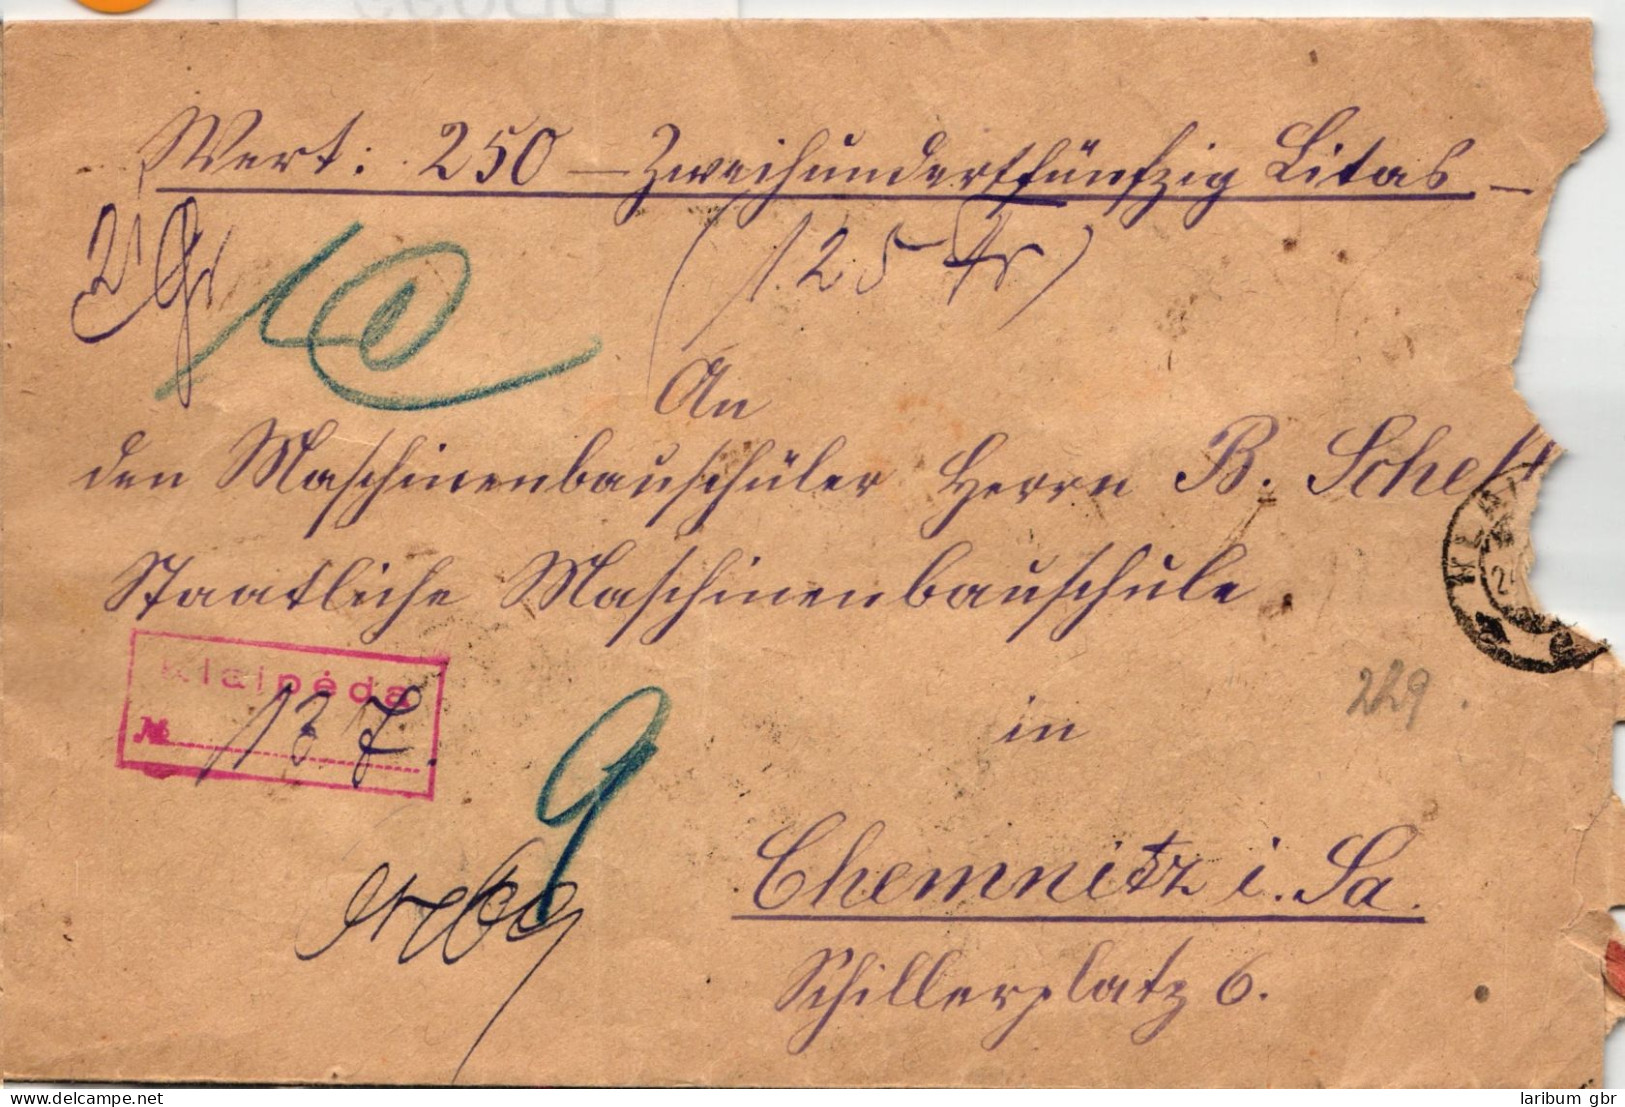 Wert: 250 — Zweihundertfünfzig Litas —
21 Gr
(125 Fr)
An
den Maschinenbauschüler Herrn B.
Staatliche Maschinenbauschule
Klaipėda
№ 137.
in
229.
9
Chemnitz i. Sa.
Schillerplatz 6.
laribum gbr